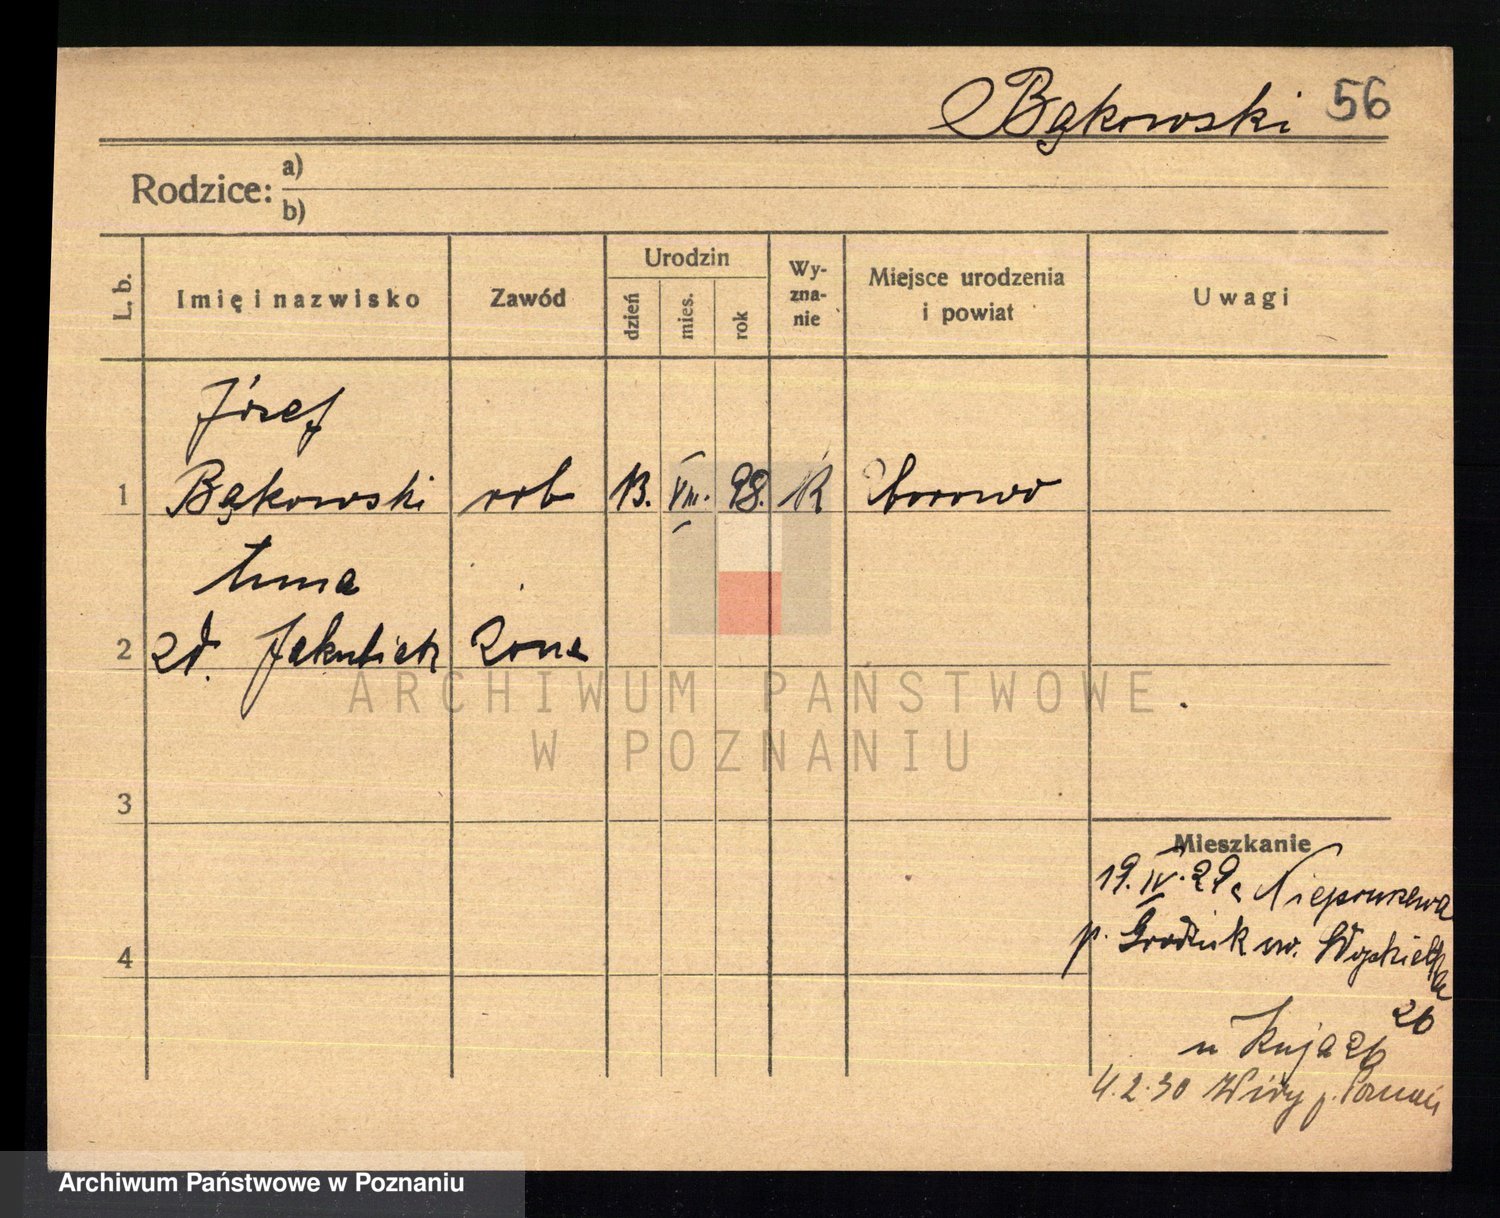 Bąkowski 56
Rodzice: a)
b)
L. b. Imię i nazwisko Zawód Urodzin dzień mies. rok Wyznanie Miejsce urodzenia i powiat Uwagi
Józef
1 Bąkowski rob 13. VIII. 98. K Borowo
Anna
2 zd. Jakubiak żona
ARCHIWUM PAŃSTWOWE
W POZNANIU
3
Mieszkanie
19. IV. 29 z Niepruszewa
p. Grodzisk
4
26
u Kuja
4.2.30 Wiry p. Poznań
Archiwum Państwowe w Poznaniu